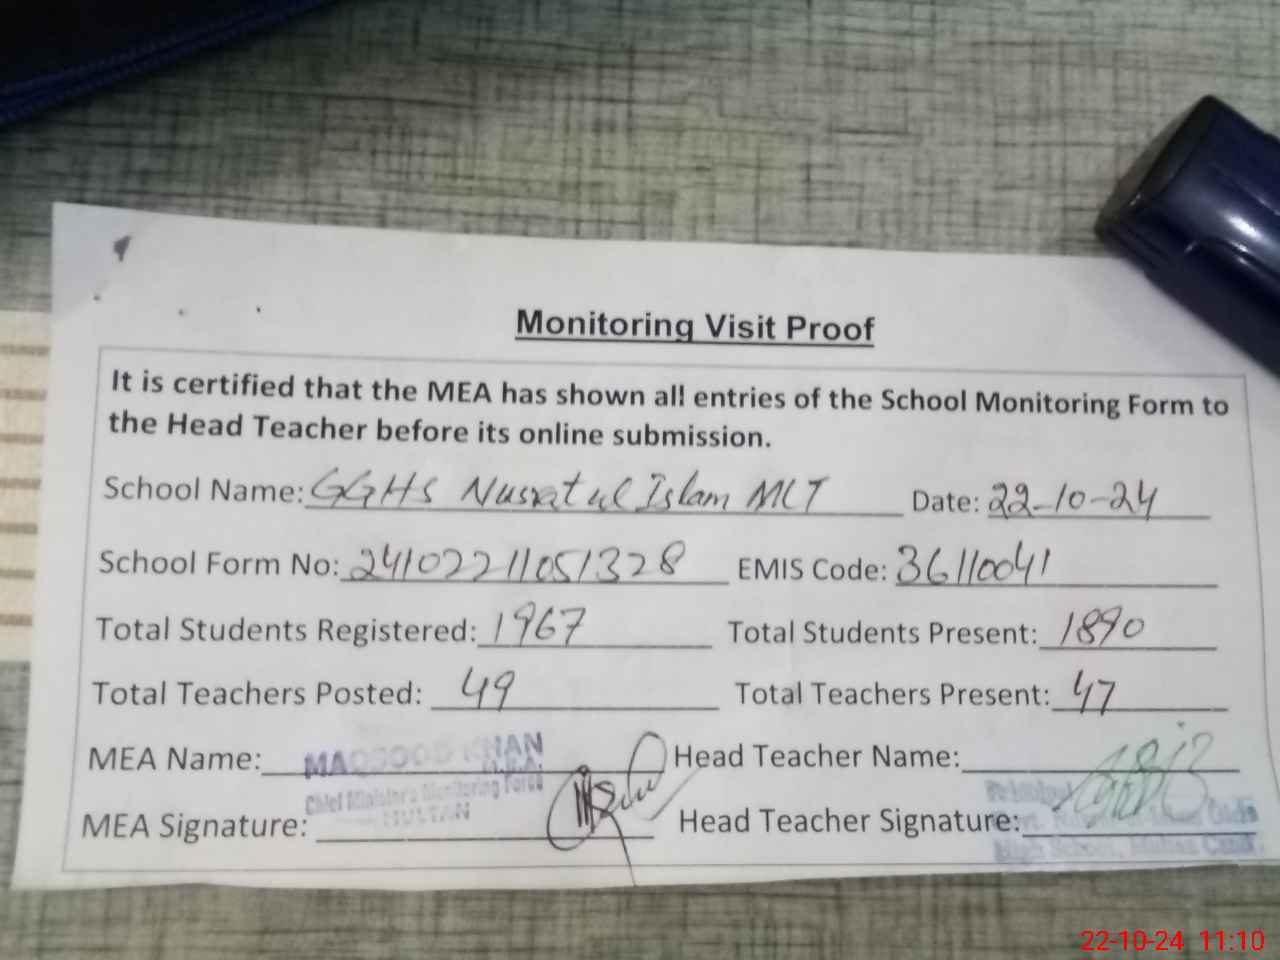 Monitoring Visit Proof
It is certified that the MEA has shown all entries of the School Monitoring Form to
the Head Teacher before its online submission.
School Name: GGHS Nusrat ul Islam MLT Date: 22-10-24
School Form No: 24102211051328 EMIS Code: 36110041
Total Students Registered: 1967 Total Students Present: 1890
Total Teachers Posted: 49 Total Teachers Present: 47
MEA Name: MAQSOOD KHAN Head Teacher Name:
M.E.A.
Chief Minister's Monitoring Force
MULTAN
MEA Signature: Head Teacher Signature:
Principal
Govt. Islam Girls
High School, Multan Cantt.
22-10-24 11:10